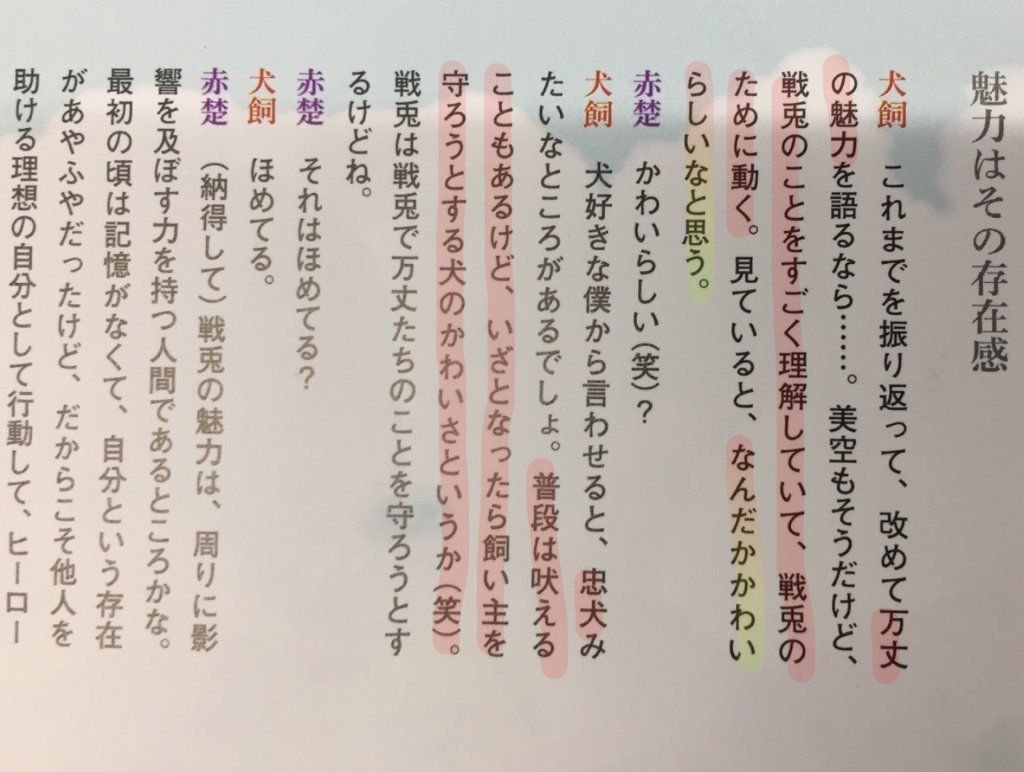 魅力はその存在感
犬飼　これまでを振り返って、改めて万丈
の魅力を語るなら……。美空もそうだけど、
戦兎のことをすごく理解していて、戦兎の
ために動く。見ていると、なんだかかわい
らしいなと思う。
赤楚　かわいらしい（笑）？
犬飼　犬好きな僕から言わせると、忠犬み
たいなところがあるでしょ。普段は吠える
こともあるけど、いざとなったら飼い主を
守ろうとする犬のかわいさというか（笑）。
戦兎は戦兎で万丈たちのことを守ろうとす
るけどね。
赤楚　それはほめてる？
犬飼　ほめてる。
赤楚　（納得して）戦兎の魅力は、周りに影
響を及ぼす力を持つ人間であるところかな。
最初の頃は記憶がなくて、自分という存在
があやふやだったけど、だからこそ他人を
助ける理想の自分として行動して、ヒーロー